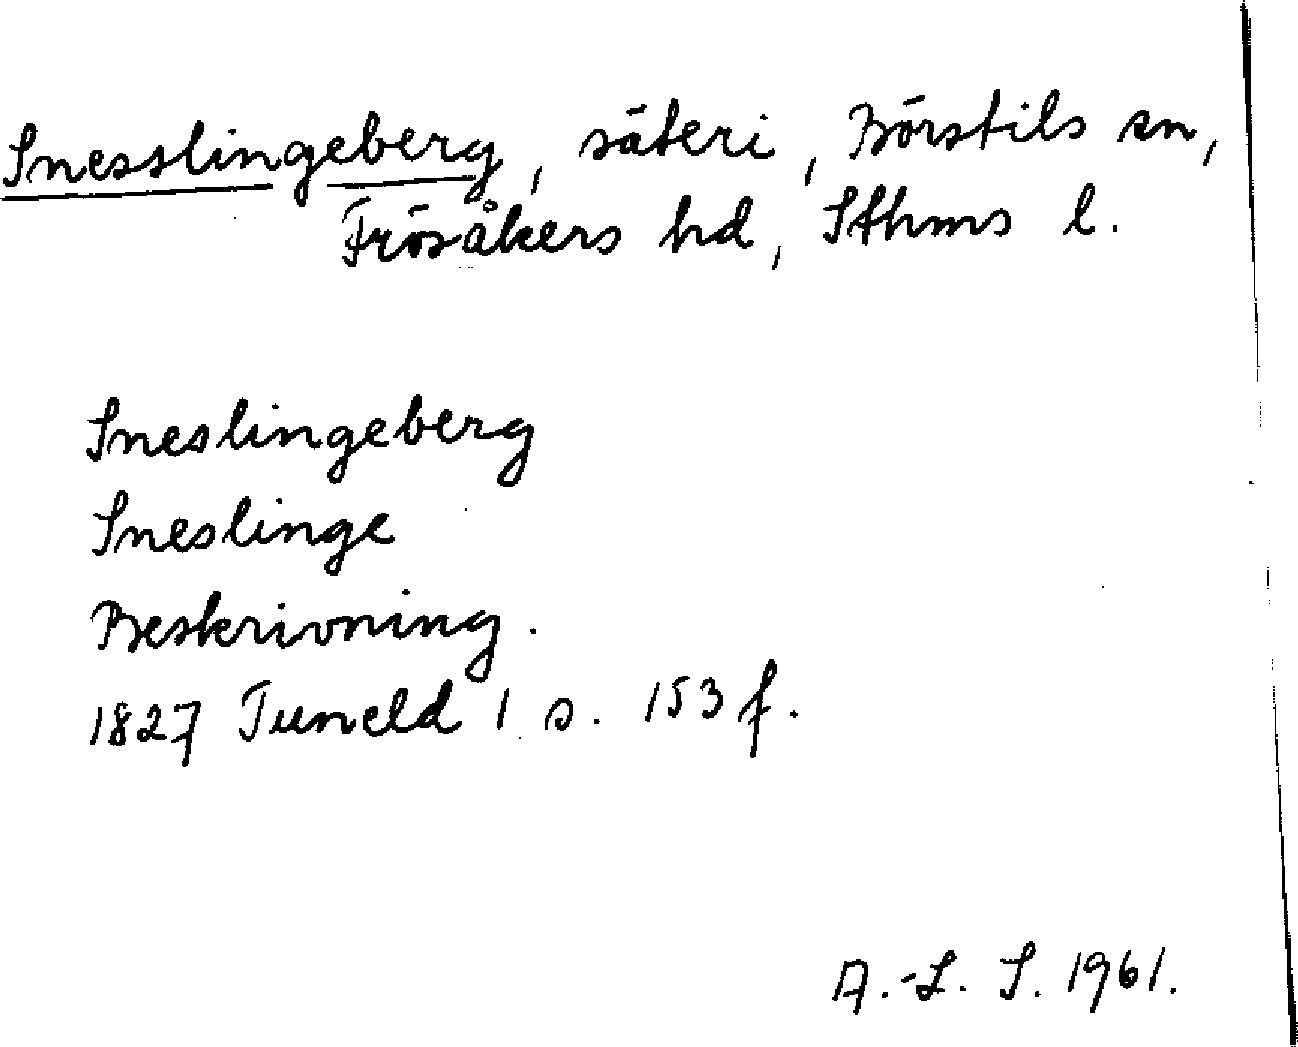 Snesslingeberg, säteri, Börstils sn,
Frösåkers hd, Sthms l.
Sneslingeberg
Sneslinge
Beskrivning.
1827 Tuneld 1 s. 153 f.
A.-L. S. 1961.